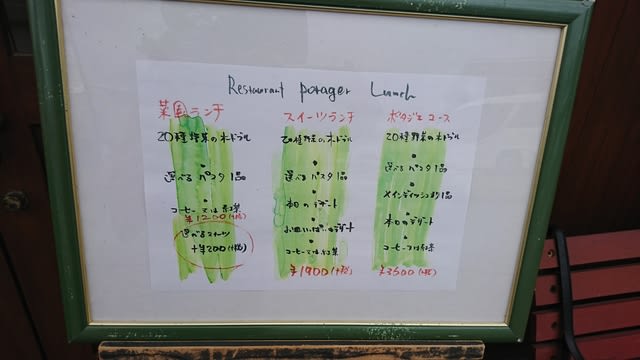 Restaurant potager Lunch
菜園ランチ
20種野菜のオードブル
選べるパスタ1品
コーヒー又は紅茶
¥1200(+税)
選べるスイーツ
+¥200(+税)
スイーツランチ
20種野菜のオードブル
選べるパスタ1品
本日のデザート
お皿いっぱいのデザート
コーヒー又は紅茶
¥1900(+税)
ポタジェコース
20種野菜のオードブル
選べるパスタ1品
メインディッシュ1品
本日のデザート
コーヒー又は紅茶
¥3500(+税)